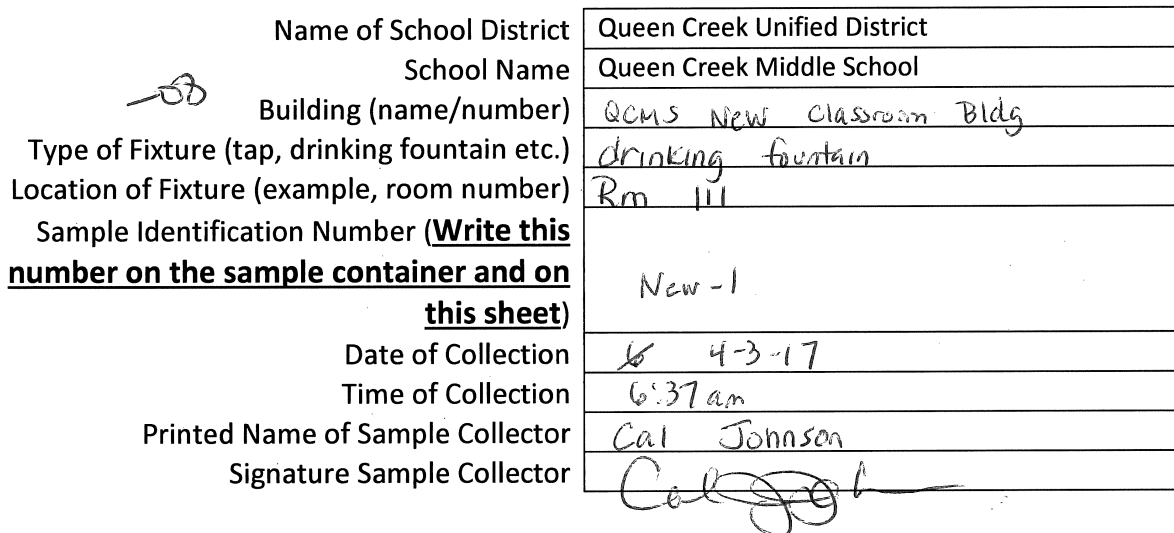 Name of School District Queen Creek Unified District
School Name Queen Creek Middle School
-08
Building (name/number) QCMS New Classroom Bldg
Type of Fixture (tap, drinking fountain etc.) drinking fountain
Location of Fixture (example, room number) Rm 111
Sample Identification Number (Write this
number on the sample container and on
this sheet) New-1
Date of Collection 4-3-17
Time of Collection 6:37am
Printed Name of Sample Collector Cal Johnson
Signature Sample Collector